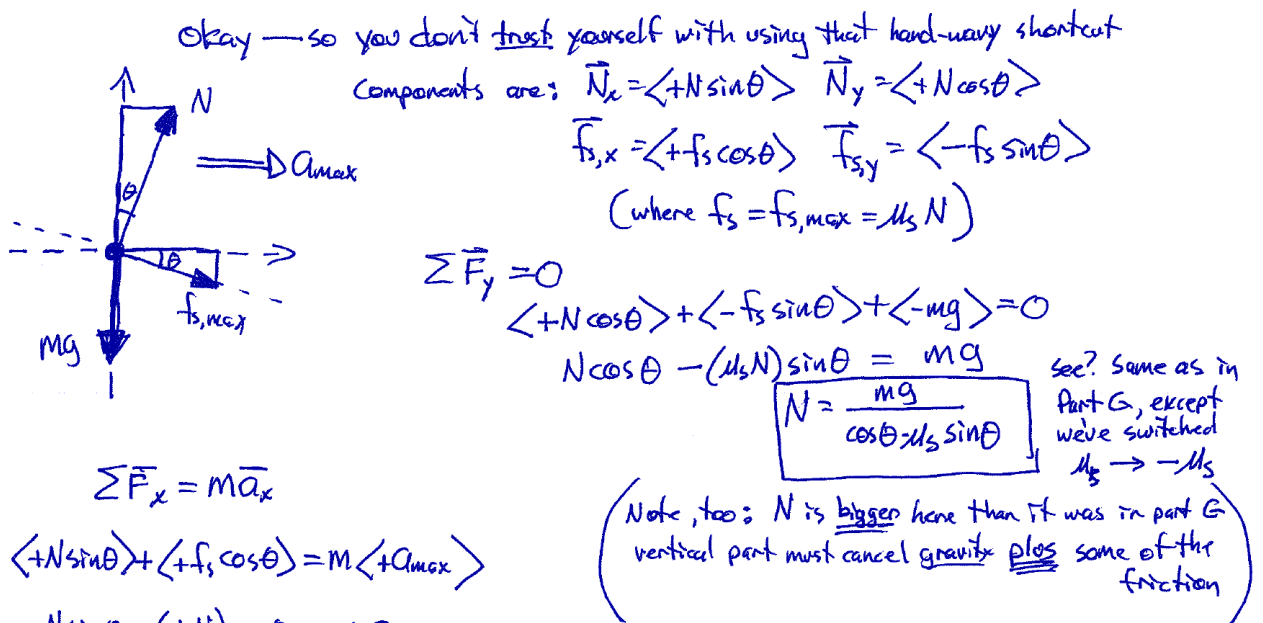 Okay — so you don't trust yourself with using that hand-wavy shortcut
Components are: N⃗x = <+N sinθ> N⃗y = <+N cosθ>
f⃗s,x = <+fs cosθ> f⃗s,y = <-fs sinθ>
(where fs = fs,max = μs N)
N
θ
amax
θ
fs,max
mg
ΣF⃗y = 0
<+N cosθ> + <-fs sinθ> + <-mg> = 0
N cosθ - (μsN) sinθ = mg
N = mg / cosθ-μs sinθ
see? Same as in
Part G, except
we've switched
μs → -μs
(Note, too: N is bigger here than it was in part G
vertical part must cancel gravity plus some of the
friction
ΣF̄x = māx
<+N sinθ> + <+fs cosθ> = m<+amax>